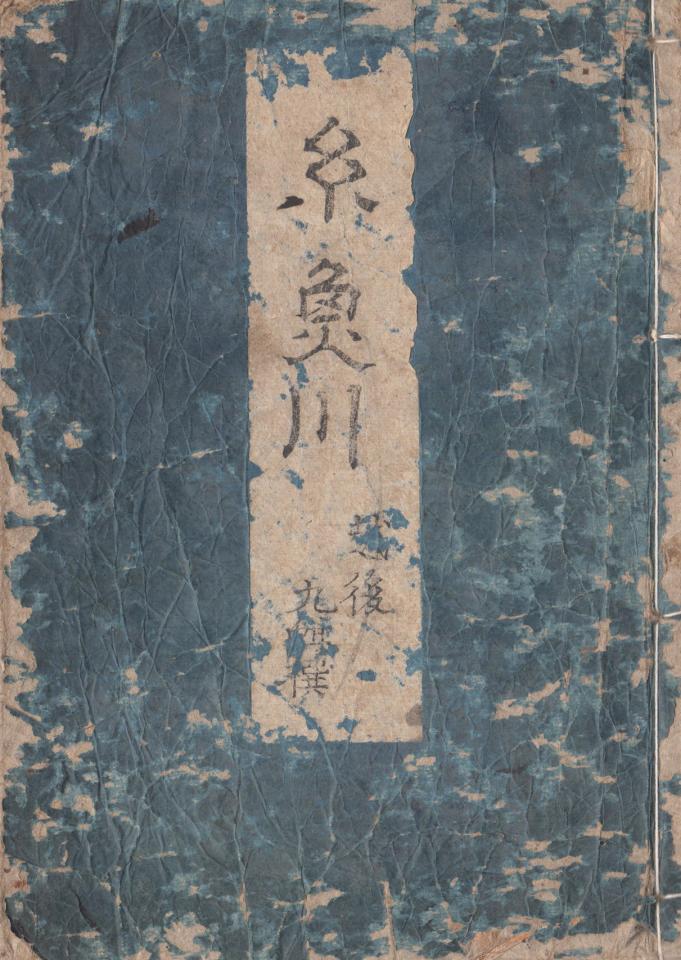 糸魚川
越後
九 撰